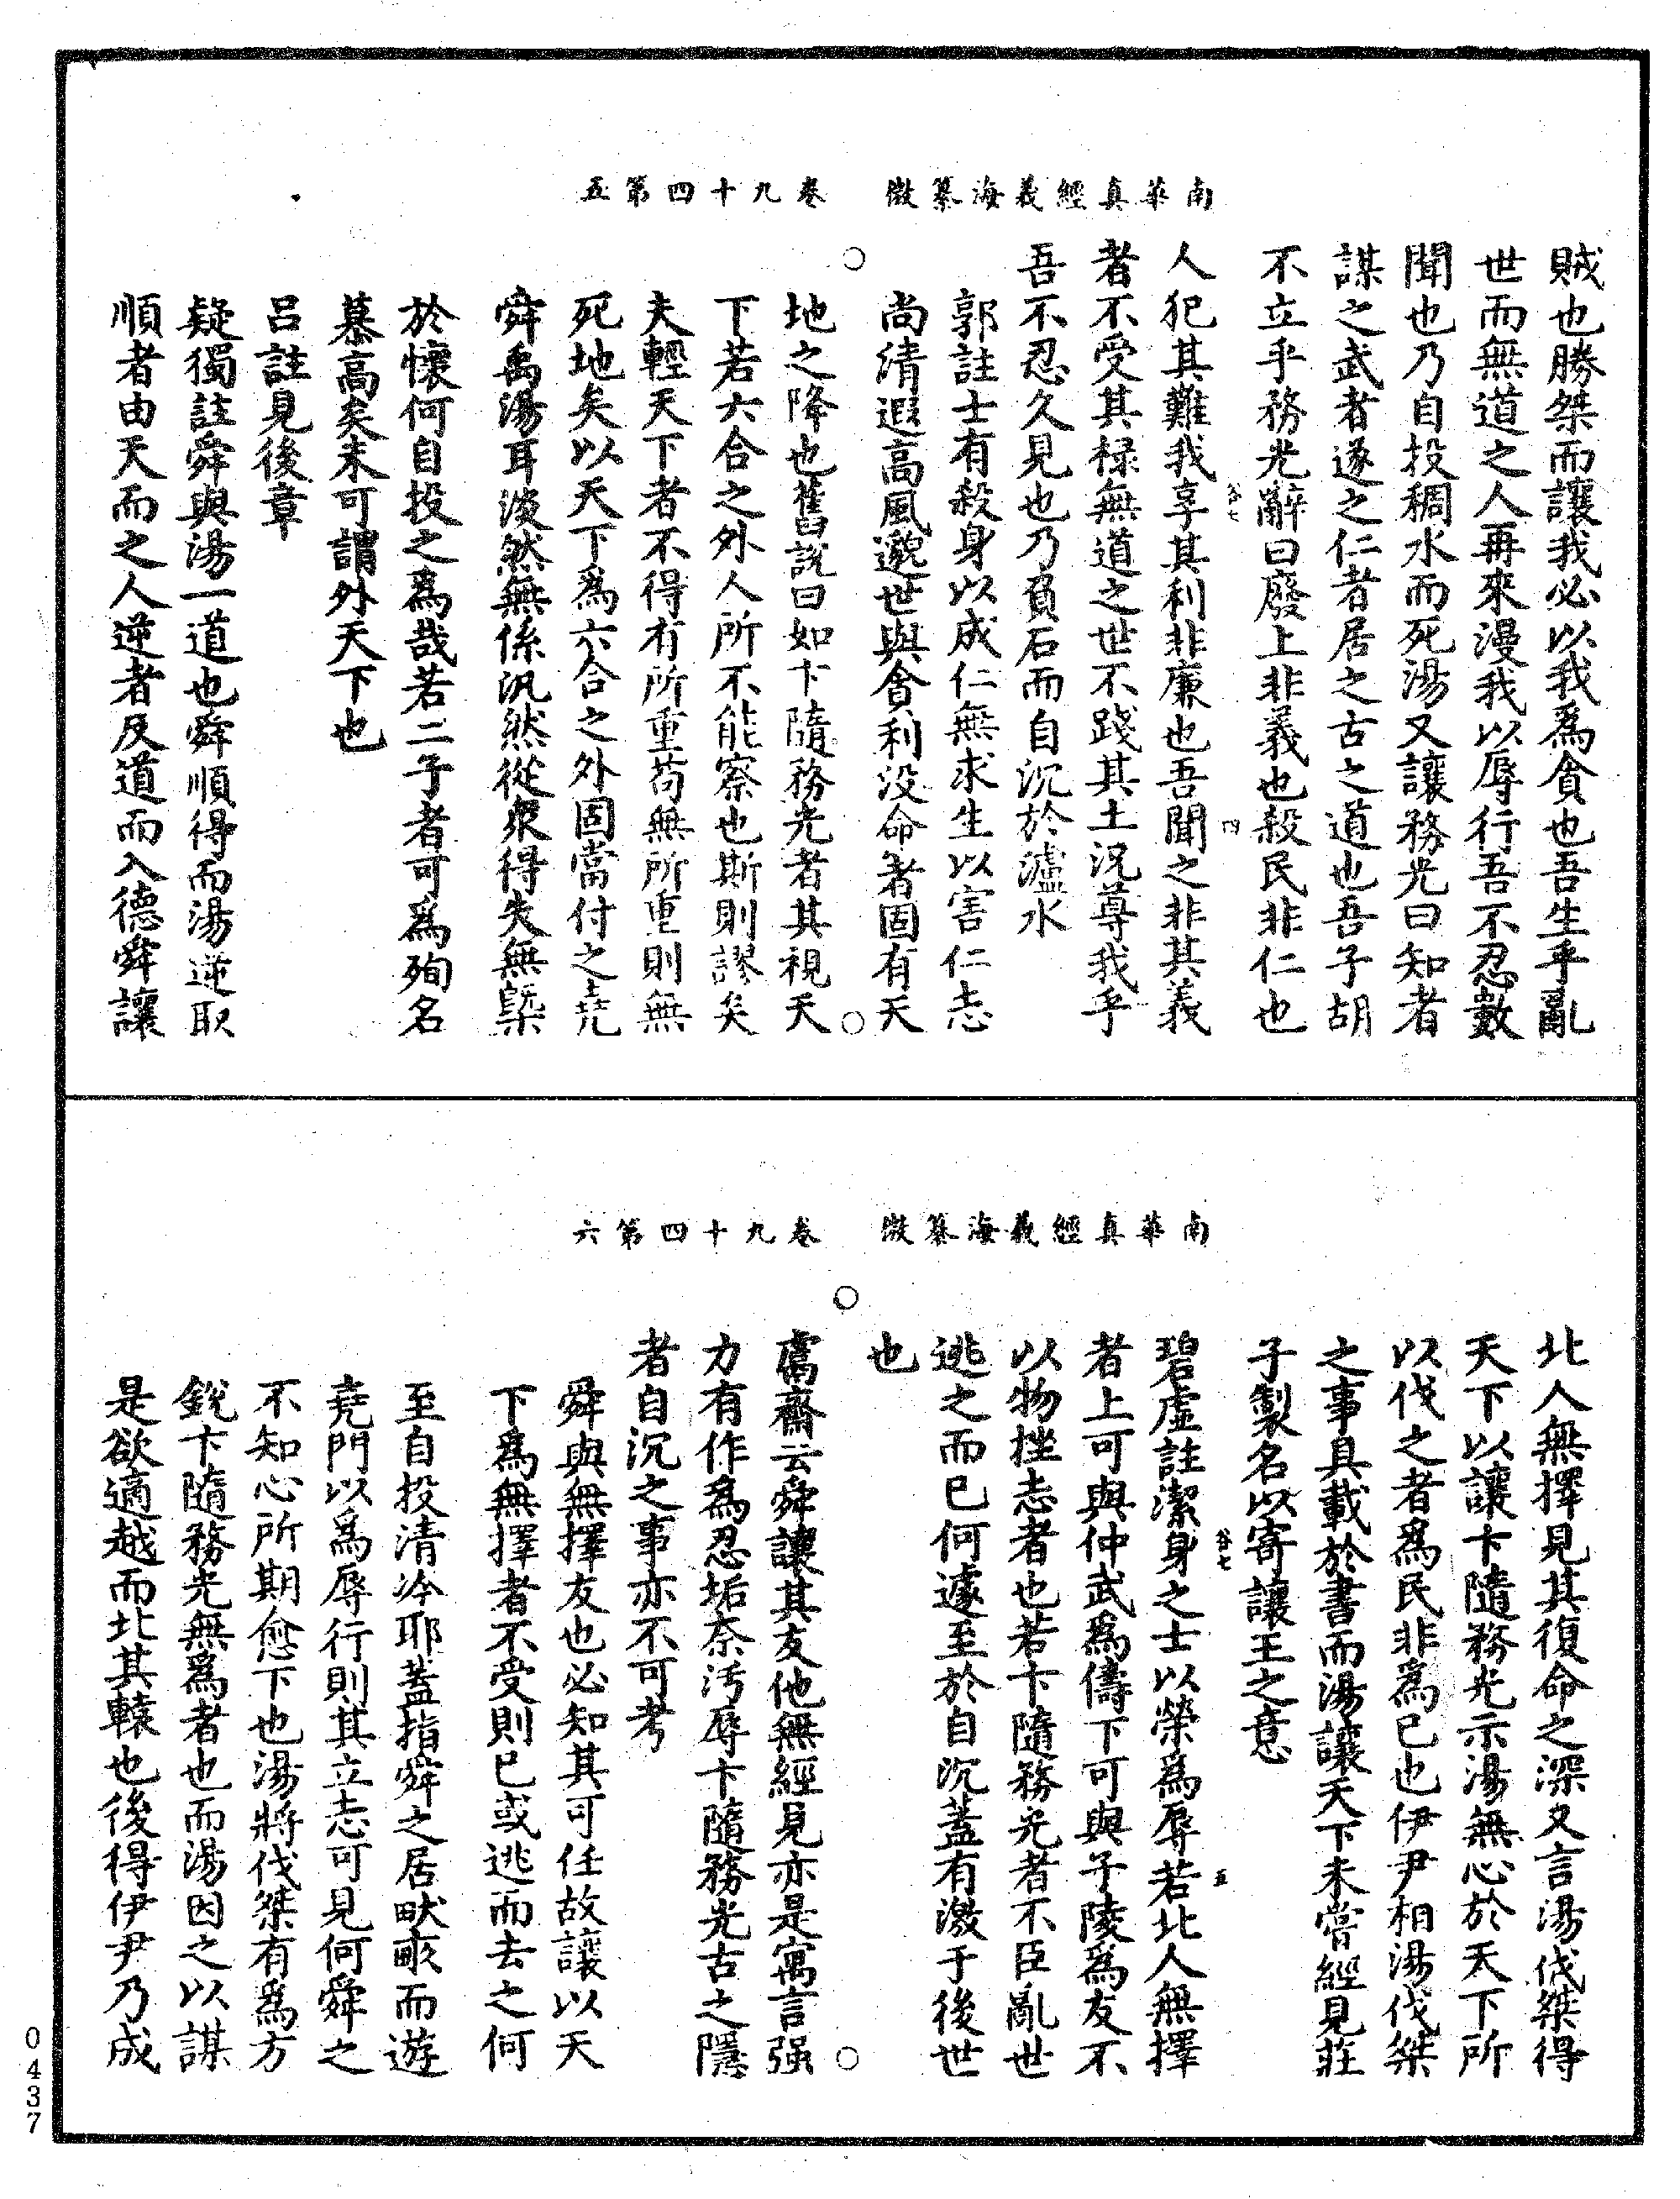 南華真經義海纂微　卷九十四第五
賊也勝桀而讓我必以我爲貪也吾生乎亂
世而無道之人再來漫我以辱行吾不忍數
聞也乃自投稠水而死湯又讓務光曰知者
謀之武者遂之仁者居之古之道也吾子胡
不立乎務光辭曰廢上非義也殺民非仁也
谷七　四
人犯其難我享其利非廉也吾聞之非其義
者不受其祿無道之世不踐其土況尊我乎
吾不忍久見也乃負石而自沉於瀘水
郭註士有殺身以成仁無求生以害仁志
尚清遐高風邈世與貪利没命者固有天
地之降也舊説曰如卞隨務光者其視天
下若六合之外人所不能察也斯則謬矣
夫輕天下者不得有所重苟無所重則無
死地矣以天下爲六合之外固當付之堯
舜禹湯耳淡然無係汎然從衆得失無槩
於懷何自投之爲哉若二子者可爲殉名
慕高矣未可謂外天下也
呂註見後章
疑獨註舜與湯一道也舜順得而湯逆取
順者由天而之人逆者反道而入德舜讓
南華真經義海纂微　卷九十四第六
北人無擇見其復命之深又言湯伐桀得
天下以讓卞隨務光示湯無心於天下所
以伐之者爲民非爲已也伊尹相湯伐桀
之事具載於書而湯讓天下未嘗經見莊
子製名以寄讓王之意
谷七　五
碧虛註潔身之士以榮爲辱若北人無擇
者上可與仲武爲儔下可與子陵爲友不
以物挫志者也若卞隨務光者不臣亂世
逃之而已何遽至於自沉蓋有激于後世
也
鬳齋云舜讓其友他無經見亦是寓言强
力有作爲忍垢奈污辱卞隨務光古之隱
者自沉之事亦不可考
舜與無擇友也必知其可任故讓以天
下爲無擇者不受則已或逃而去之何
至自投清泠耶蓋指舜之居畎畝而遊
堯門以爲辱行則其立志可見何舜之
不知心所期愈下也湯將伐桀有爲方
銳卞隨務光無爲者也而湯因之以謀
是欲適越而北其轅也後得伊尹乃成
0437